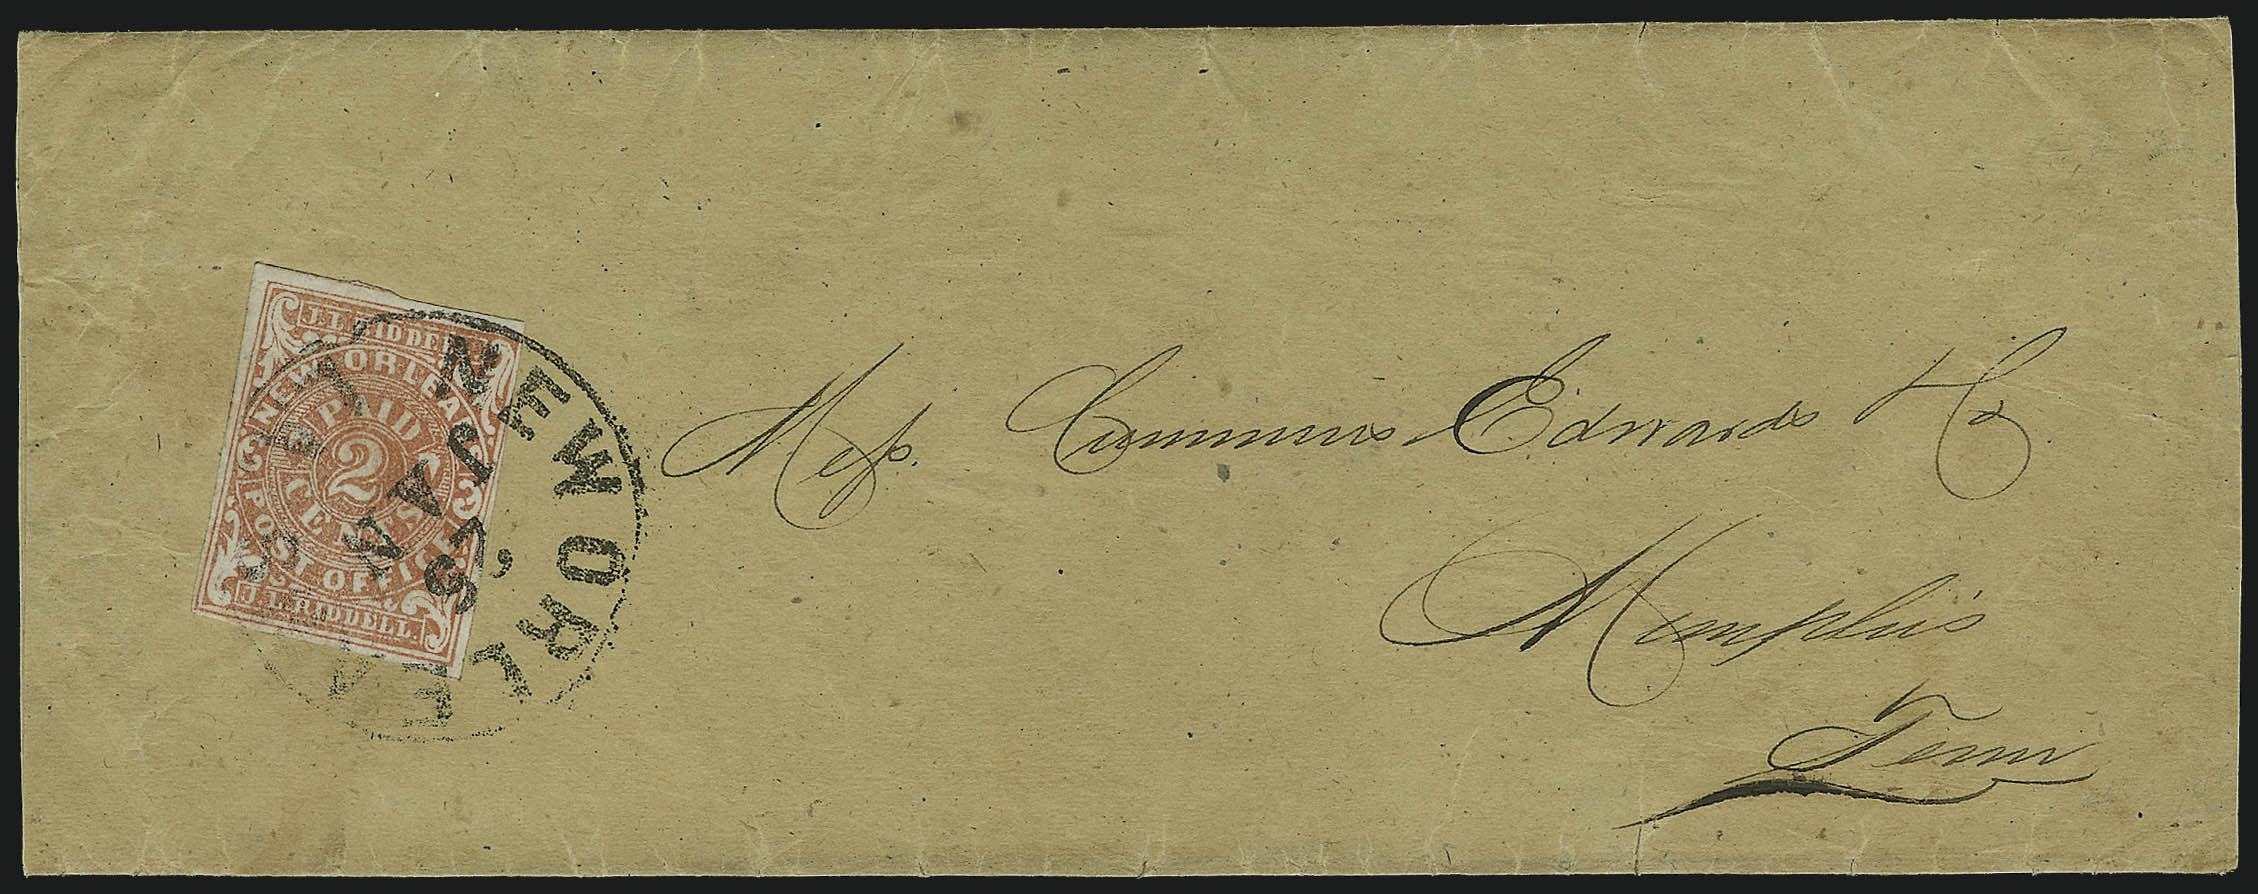 J.L.RIDDELL.
NEW ORLEANS
PAID
2
CENTS
POST OFFICE
J.L.RIDDELL.
NEW ORLEANS LA
JAN
25
Mess. Cummins Edwards & Co
Memphis
Tenn